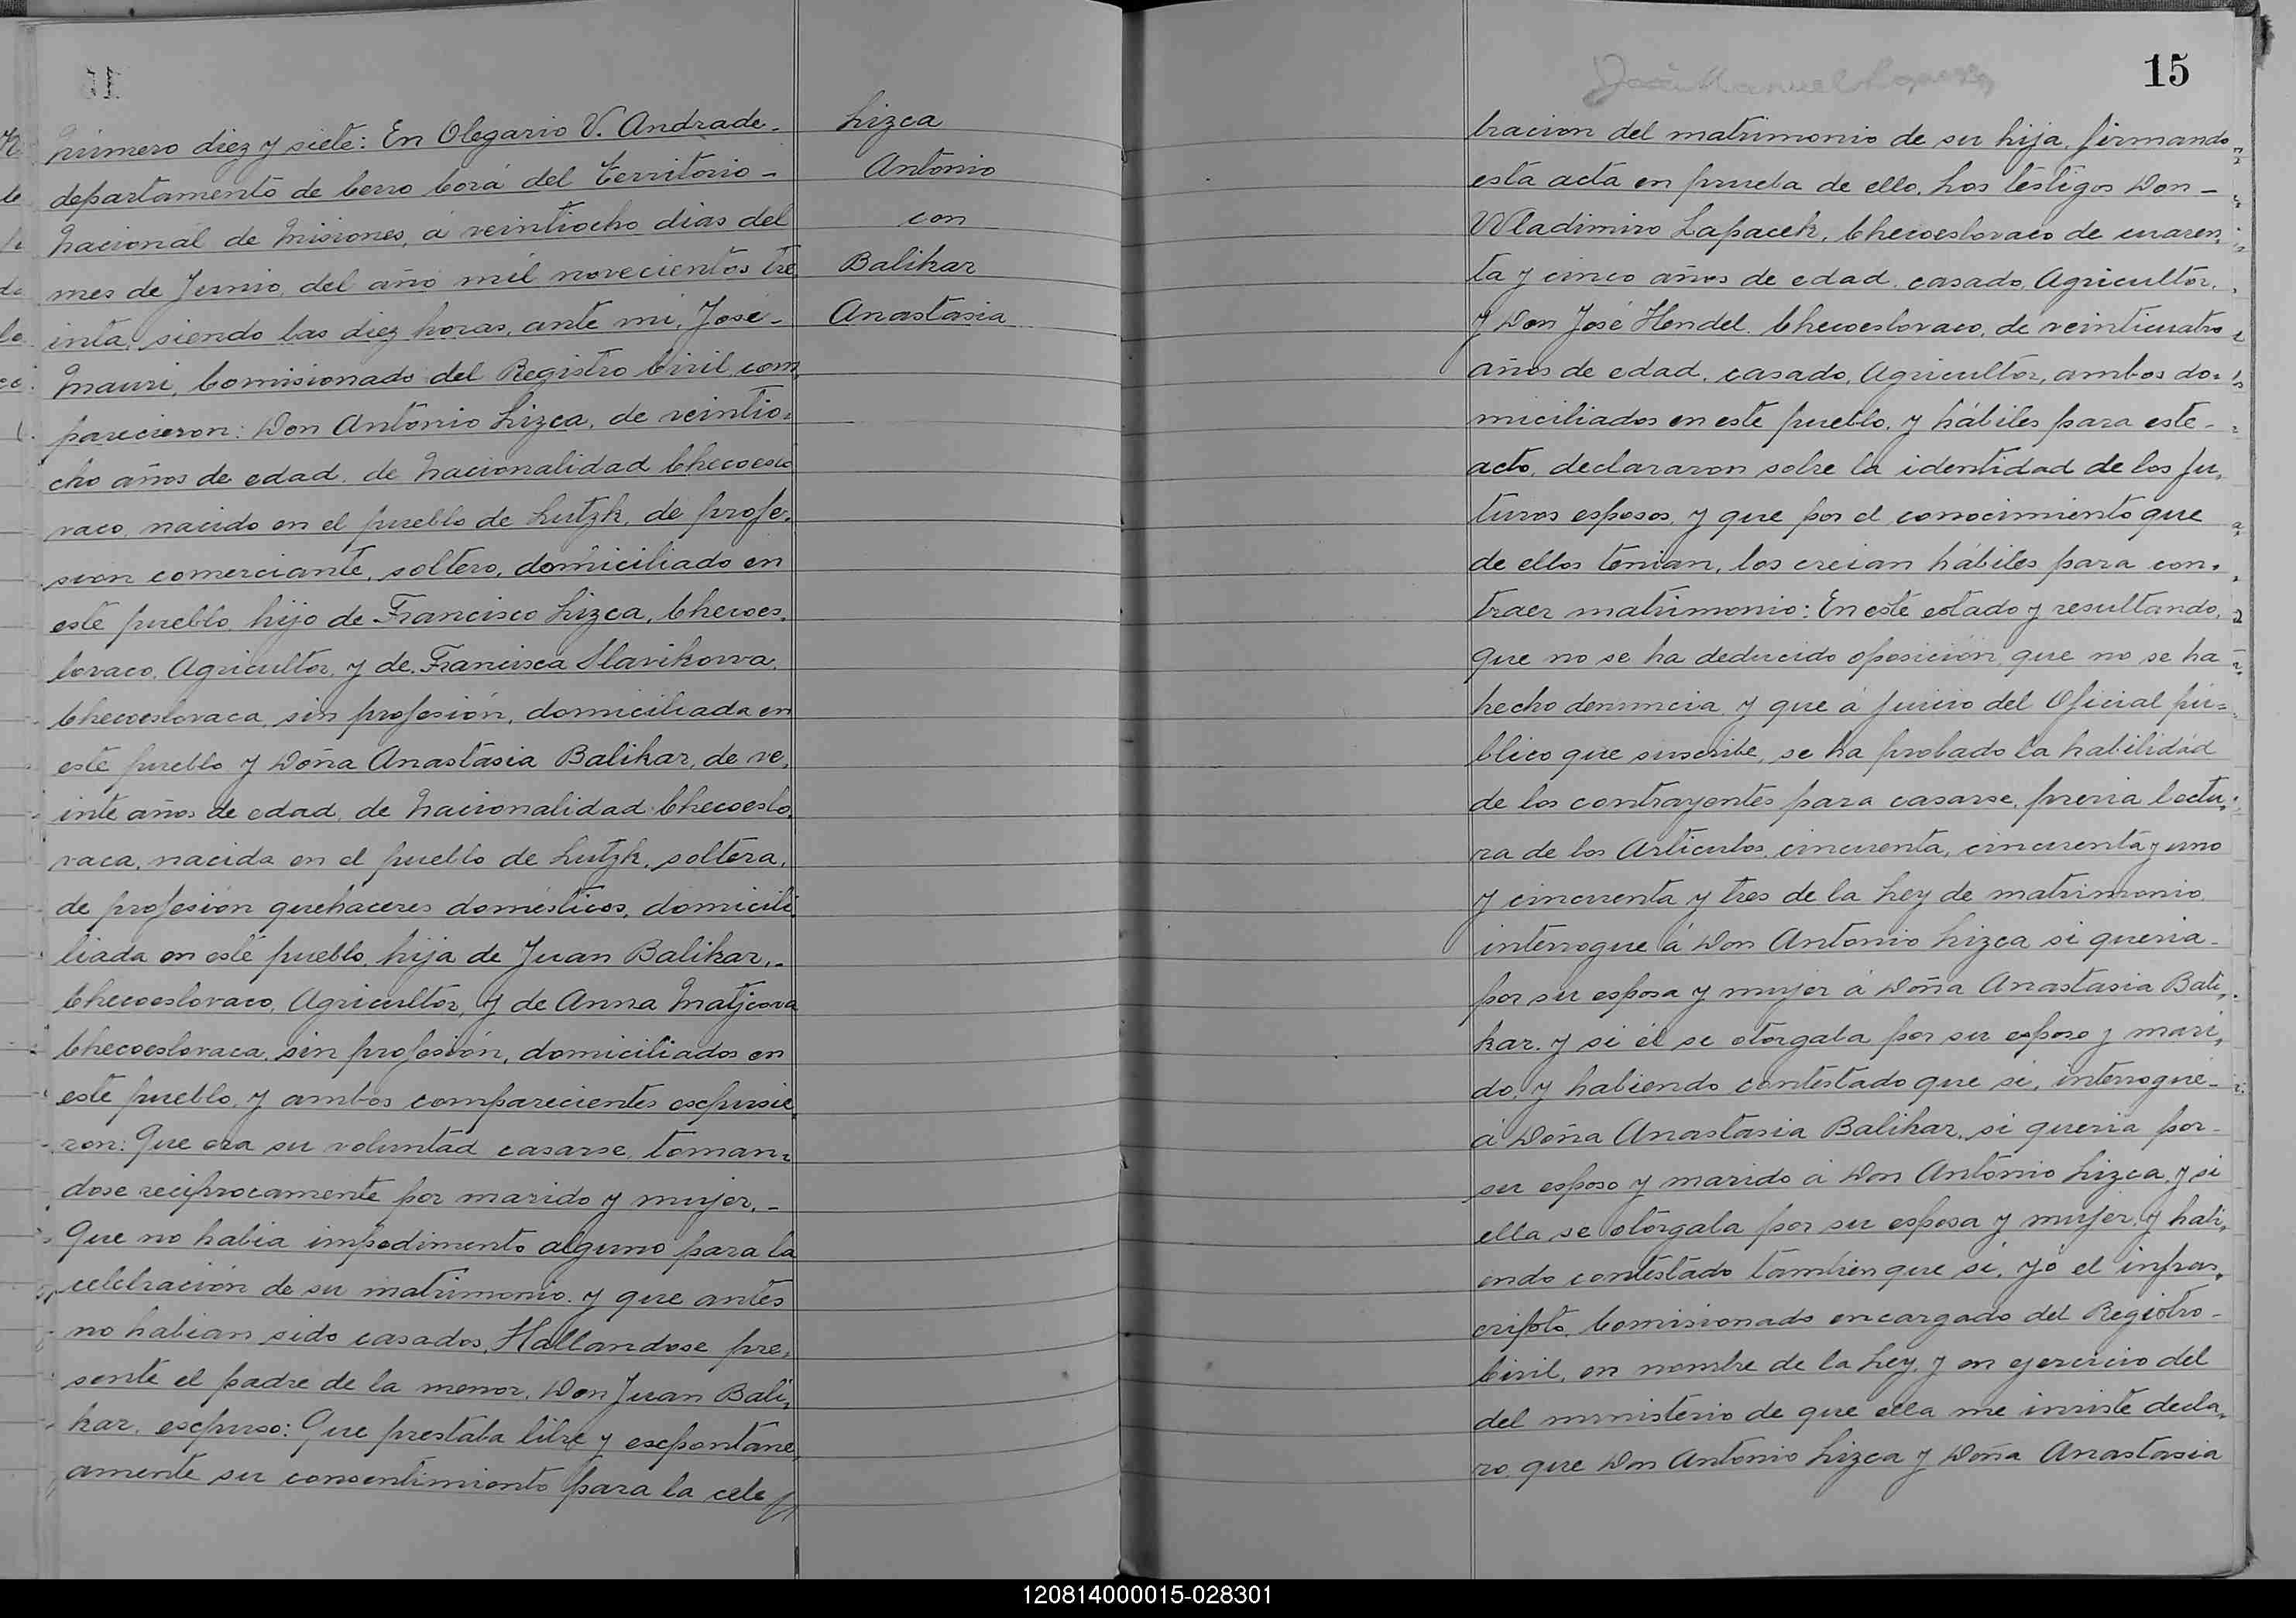 Número diez y siete: En Olegario V. Andrade-
departamento de Cerro Corá del Territorio-
Nacional de Misiones, á veintiocho dias del
mes de Junio, del año mil novecientos tre
inta, siendo las diez horas, ante mi, José-
Mauri, Comisionado del Registro Civil, com,
parecieron: Don Antonio Lizca, de veintio,
cho años de edad, de Nacionalidad Checoeslo
vaco, nacido en el pueblo de Lutzk, de profe,
sion comerciante, soltero, domiciliado en
este pueblo, hijo de Francisco Lizca, Checoes,
lovaco, Agricultor, y de Francisca Slavikowa,
Checoeslovaca, sin profesión, domiciliada en
este pueblo y Doña Anastasia Balikar, de ve,
inte años de edad, de Nacionalidad Checoeslo,
vaca, nacida en el pueblo de Lutzk, soltera,
de profesión quehaceres domésticos, domicili
liada en este pueblo, hija de Juan Balikar,-
Checoeslovaco, Agricultor, y de Anna Matjcova
Checoeslovaca, sin profesión, domiciliados en
este pueblo, y ambos comparecientes escpusie,
ron: Que era su voluntad casarse, toman,
dose reciprocamente por marido y mujer,-
Que no habia impedimento alguno para la
celebración de su matrimonio, y que antes
no habian sido casados, Hallandose pre,
sente el padre de la menor, Don Juan Bali,
kar, escpuso: Que prestaba libre y escpontane,
amente su consentimiento para la cele
Lizca
Antonio
con
Balikar
Anastasia
15
bracion del matrimonio de su hija, firmando
esta acta en prueba de ello, Los testigos Don-
Wladimiro Lapacek, Checoeslovaco de cuaren,
ta y cinco años de edad, casado, Agricultor,
y Don José Hendel, Checoeslovaco, de veinticuatro
años de edad, casado, Agricultor, ambos do-
miciliados en este pueblo, y hábiles para este-
acto, declararon sobre la identidad de los fu,
turos esposos, y que por el conocimiento que
de ellos tenian, los creian hábiles para con,
traer matrimonio: En este estado y resultando,
que no se ha deducido oposición, que no se ha
hecho denuncia y que á juicio del Oficial pú=
blico que suscribe, se ha probado la habilidad
de los contrayentes para casarse, previa lectu,
ra de los Articulos, cincuenta, cincuenta y uno
y cincuenta y tres de la Ley de matrimonio,
interrogue á Don Antonio Lizca si queria-
por su esposa y mujer á Doña Anastasia Bali,
kar, y si él se otorgaba por su esposo y mari,
do, y habiendo contestado que si, interrogue-
á Doña Anastasia Balikar, si queria por-
su esposo y marido á Don Antonio Lizca, y si
ella se otorgaba por su esposa y mujer, y habi,
endo contestado tambien que si, yó el infras,
cripto, Comisionado encargado del Registro-
Civil, en nombre de la Ley, y en ejercicio del
del ministerio de que ella me inviste decla,
ro, que Don Antonio Lizca y Doña Anastasia
120814000015-028301